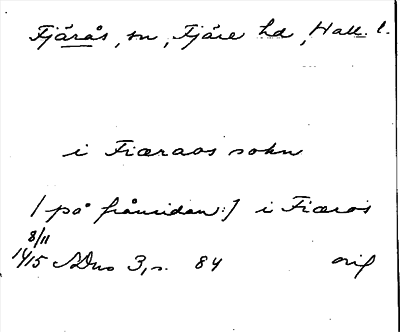 Fjärås, sn, Fjäre hd, Hall. l.
i Fiæraos sokn
/ på frånsidan:/ i Fiæros
8/11
1415 SDns 3, s. 84 orig